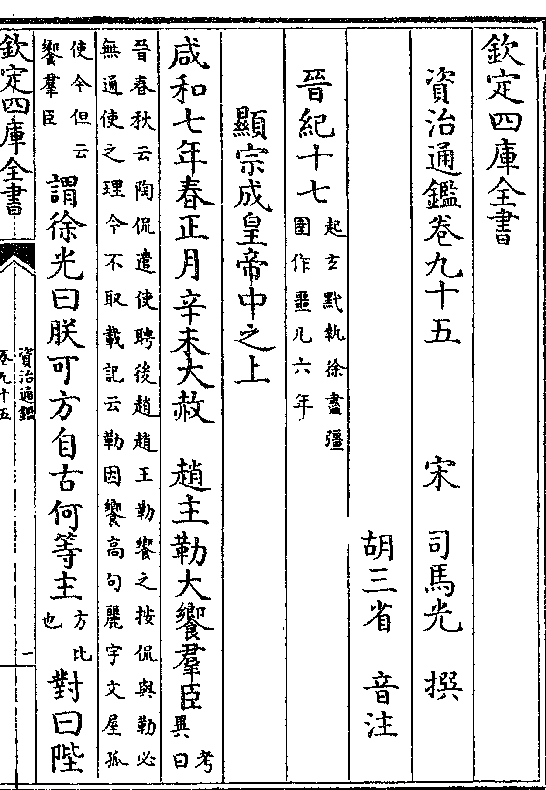 欽定四庫全書
資治通鑑卷九十五
宋 司馬光 撰
胡三省 音注
晉紀十七
起玄黓執徐盡彊
圉作噩凡六年
顯宗成皇帝中之上
咸和七年春正月辛未大赦 趙主勒大饗羣臣
考
異曰
晉春秋云陶侃遣使聘後趙趙王勒饗之按侃與勒必
無通使之理今不取載記云勒因饗高句麗宇文屋孤
使今但云
饗羣臣
謂徐光曰朕可方自古何等主
方比
也
對曰陛
欽定四庫全書
資治通鑑
卷九十五
一